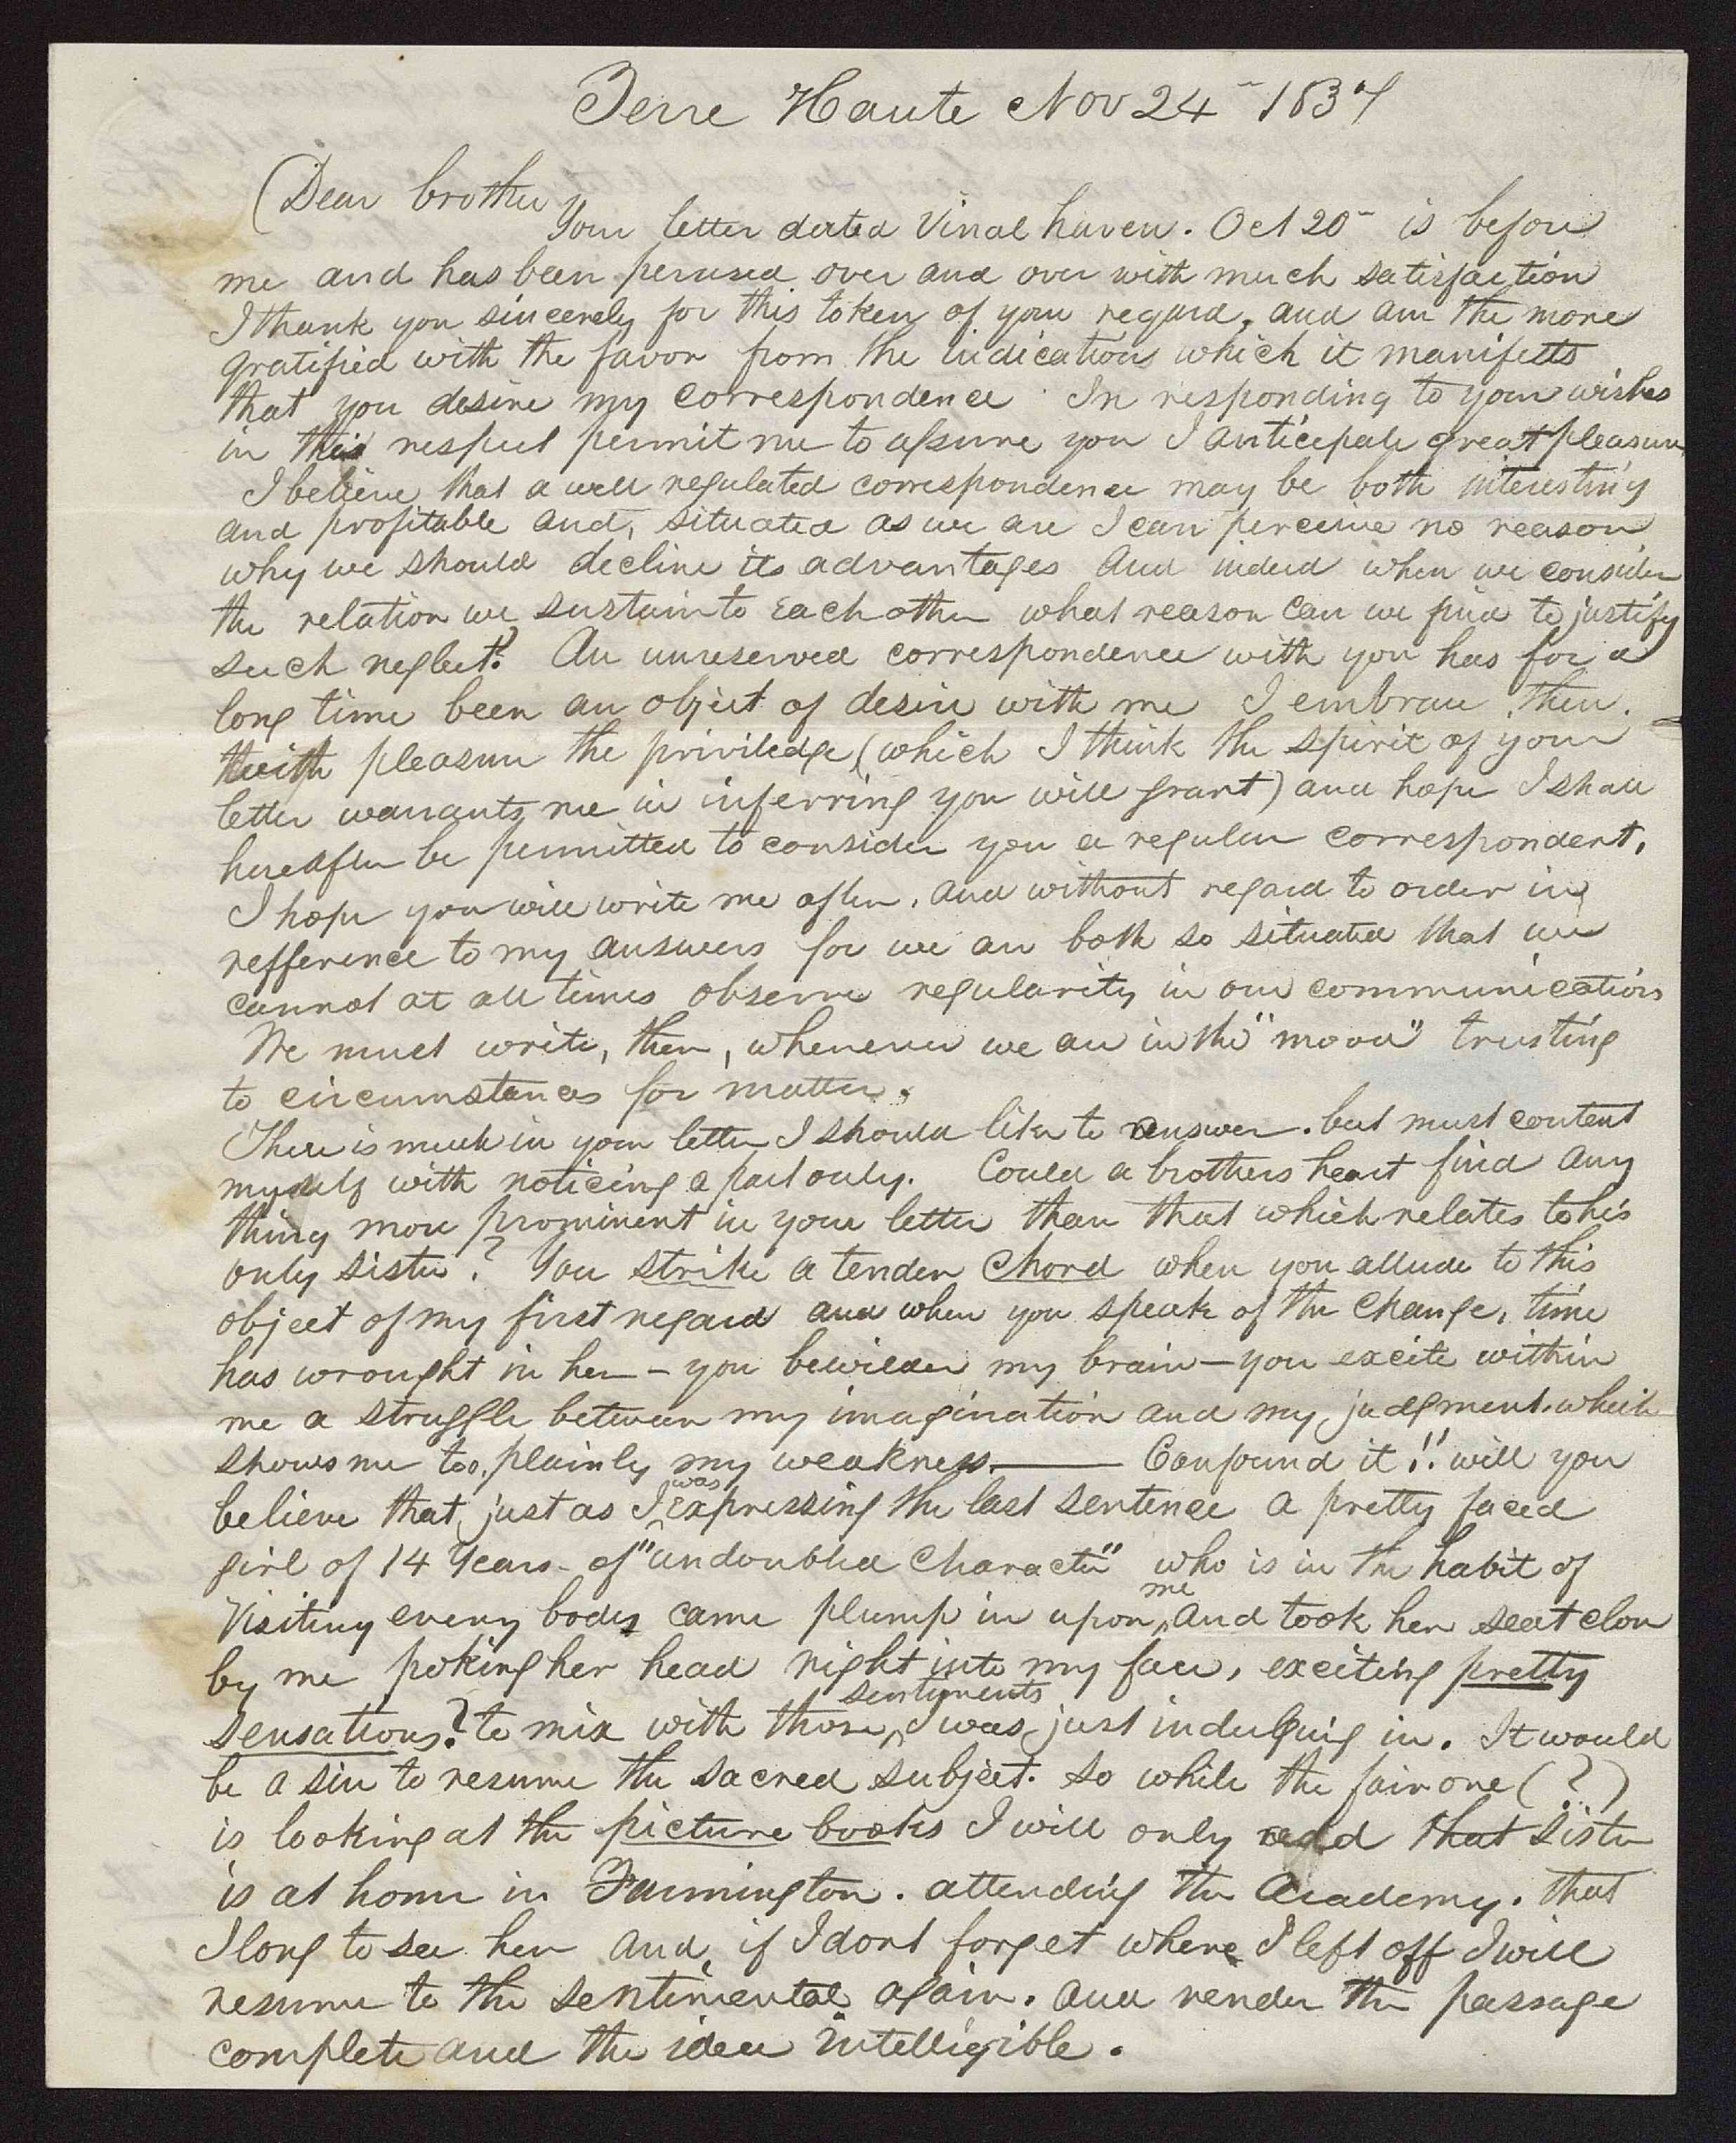 Terre Haute Nov 24 - 1837
Dear brother
Your letter dated Vinal haven. Oct 20 - is before
me and has been perused over and over with much satisfaction
I thank you sincerely for this token of your regard, and am the more
gratified with the favor from the indications which it manifests
that you desire my correspondence. In responding to your wishes
in this respect permit me to assure you I anticipate great pleasure
I believe that a well regulated correspondence may be both interesting
and profitable and, situated as we are I can perceive no reason
why we should decline its advantages And indeed when we consider
the relation we sustain to each other what reason can we find to justify
such neglect? An unreserved correspondence with you has for a
long time been an object of desire with me I embrace then.
with pleasure the priviledge (which I think the spirit of your
letter warrants me in inferring you will grant) and hope I shall
hereafter be permitted to consider you a regular correspondent,
I hope you will write me often, and without regard to order in
refference to my answers for we are both so situated that we
cannot at all times observe regularity in our communications
We must write, then, whenever we are in the "mood" trusting
to circumstances for matter.
There is much in your letter I should like to answer. but must content
myself with noticing a part only. Could a brothers heart find any
thing more prominent in your letter than that which relates to his
only sister? You strike a tender chord when you allude to this
object of my first regard and when you speak of the change, time
has wrought in her - you bewilder my brain - you excite within
me a struggle between my imagination and my judgment. which
shows me too, plainly my weakness. —— Confound it!! will you
believe that, just as I was expressing the last sentence a pretty faced
girl of 14 Years - of "undoubted character" who is in the habit of
Visiting every body came plump in upon me and took her seat close
by me poking her head right into my face, exciting pretty
sensations? to mix with those sentiments I was just indulging in. It would
be a sin to resume the sacred subject. so while the fair one (?)
is looking at the picture books I will only add that sister
is at home in Farmington. attending the Academy. that
I long to see her and, if I dont forget where I left off I will
resume to the sentimental again. and render the passage
complete and the idea intelligible.